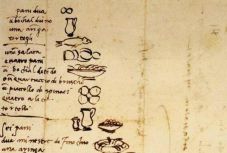 pani dua
u bochal di vino
una aringa
tortegli
una salata
quatro pani
u bochal di todo
e u quartuccio di bruscho
u piatello di spinaci
quatro alice
tortelli
sei pani
dua minestre di finochio
una aringa